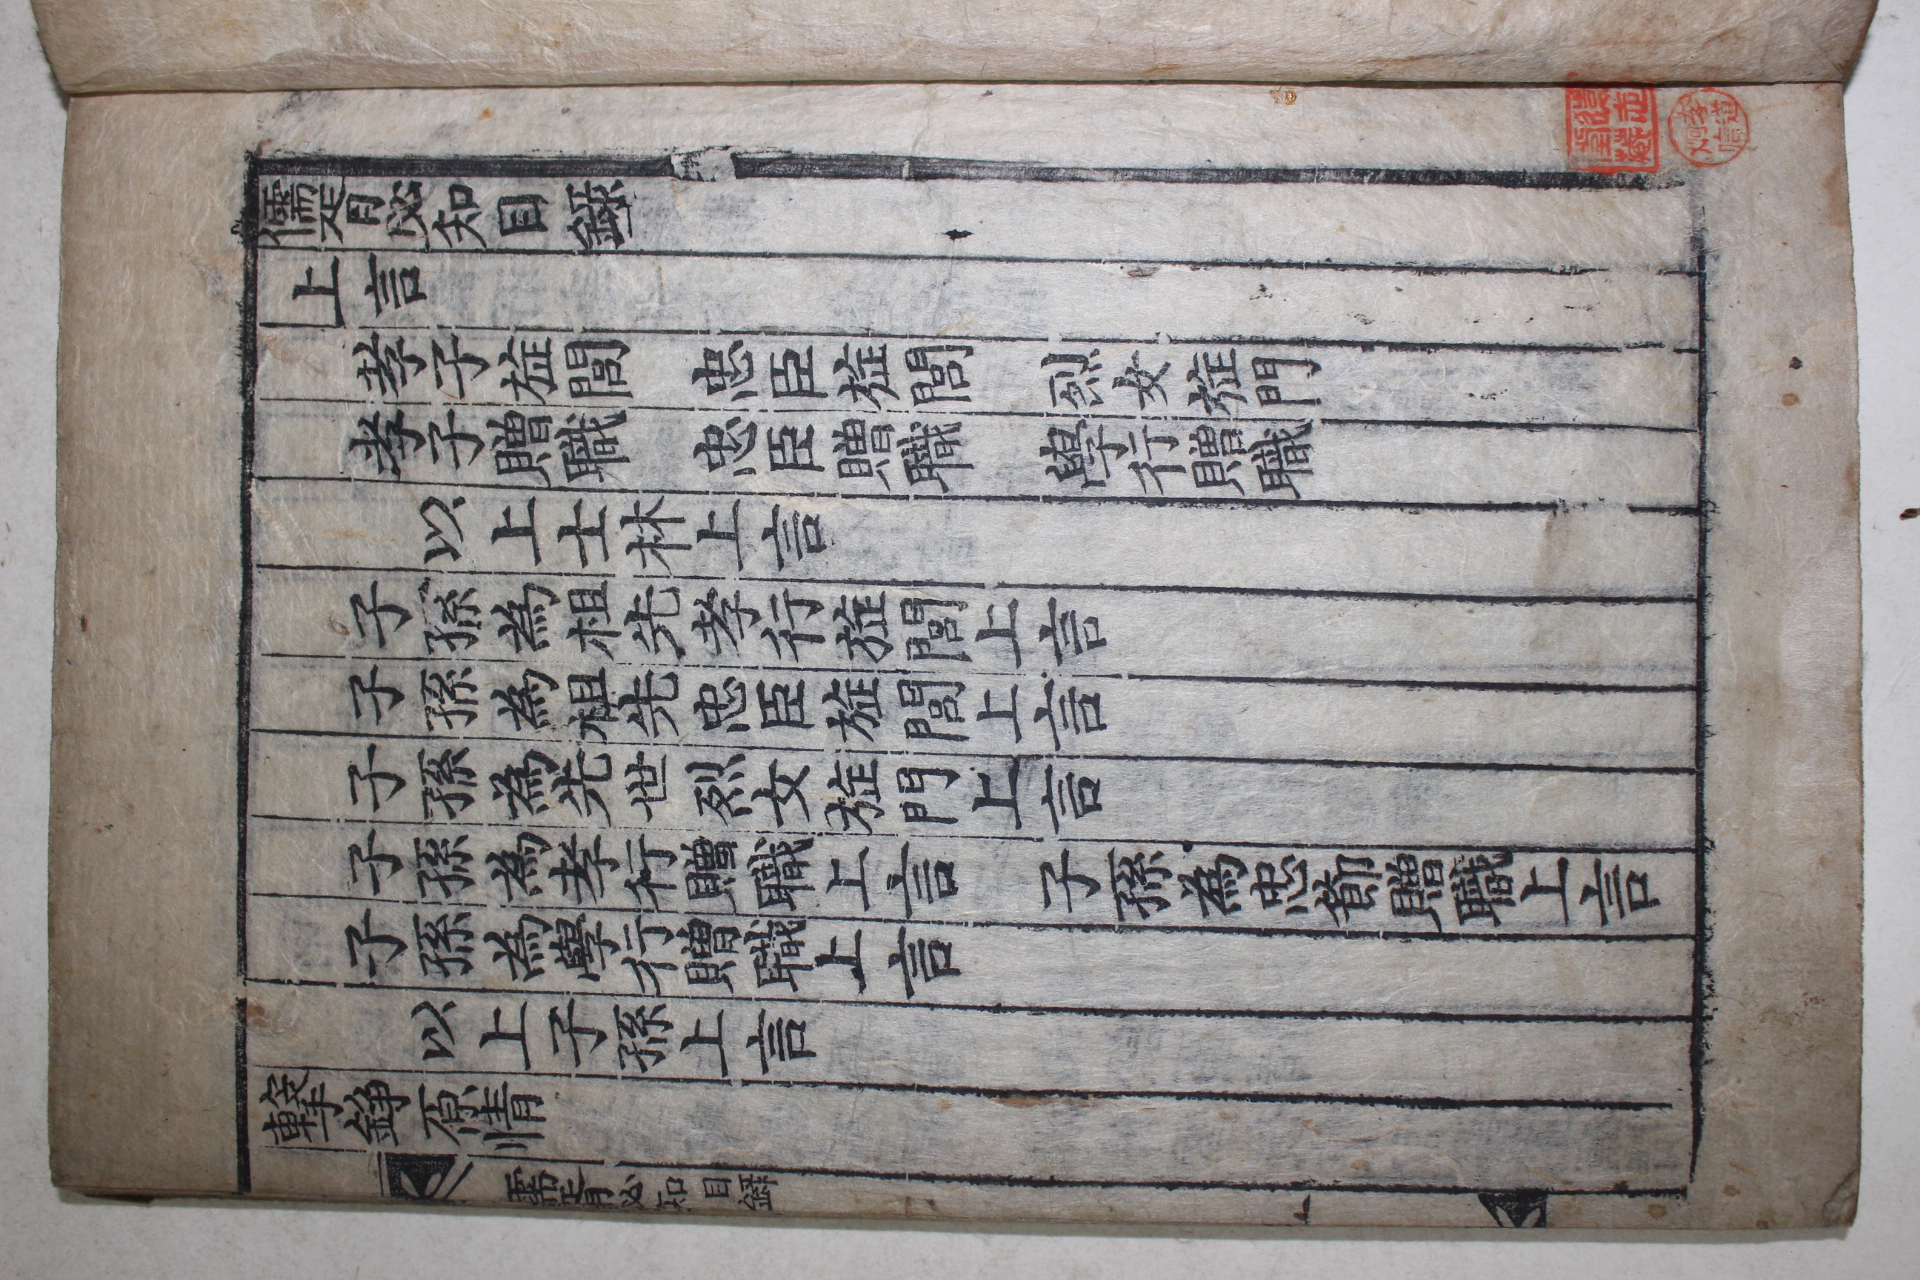 儒胥必知目錄
上言
孝子㫌閭 忠臣㫌閭 烈女㫌門
孝子贈職 忠臣贈職 學行贈職
以上士林上言
子孫為祖先孝行㫌閭上言
子孫為祖先忠臣㫌閭上言
子孫為先世烈女㫌門上言
子孫為孝行贈職上言 子孫為忠節贈職上言
子孫為學行贈職上言
以上子孫上言
擊錚原情
儒胥必知 目錄
一